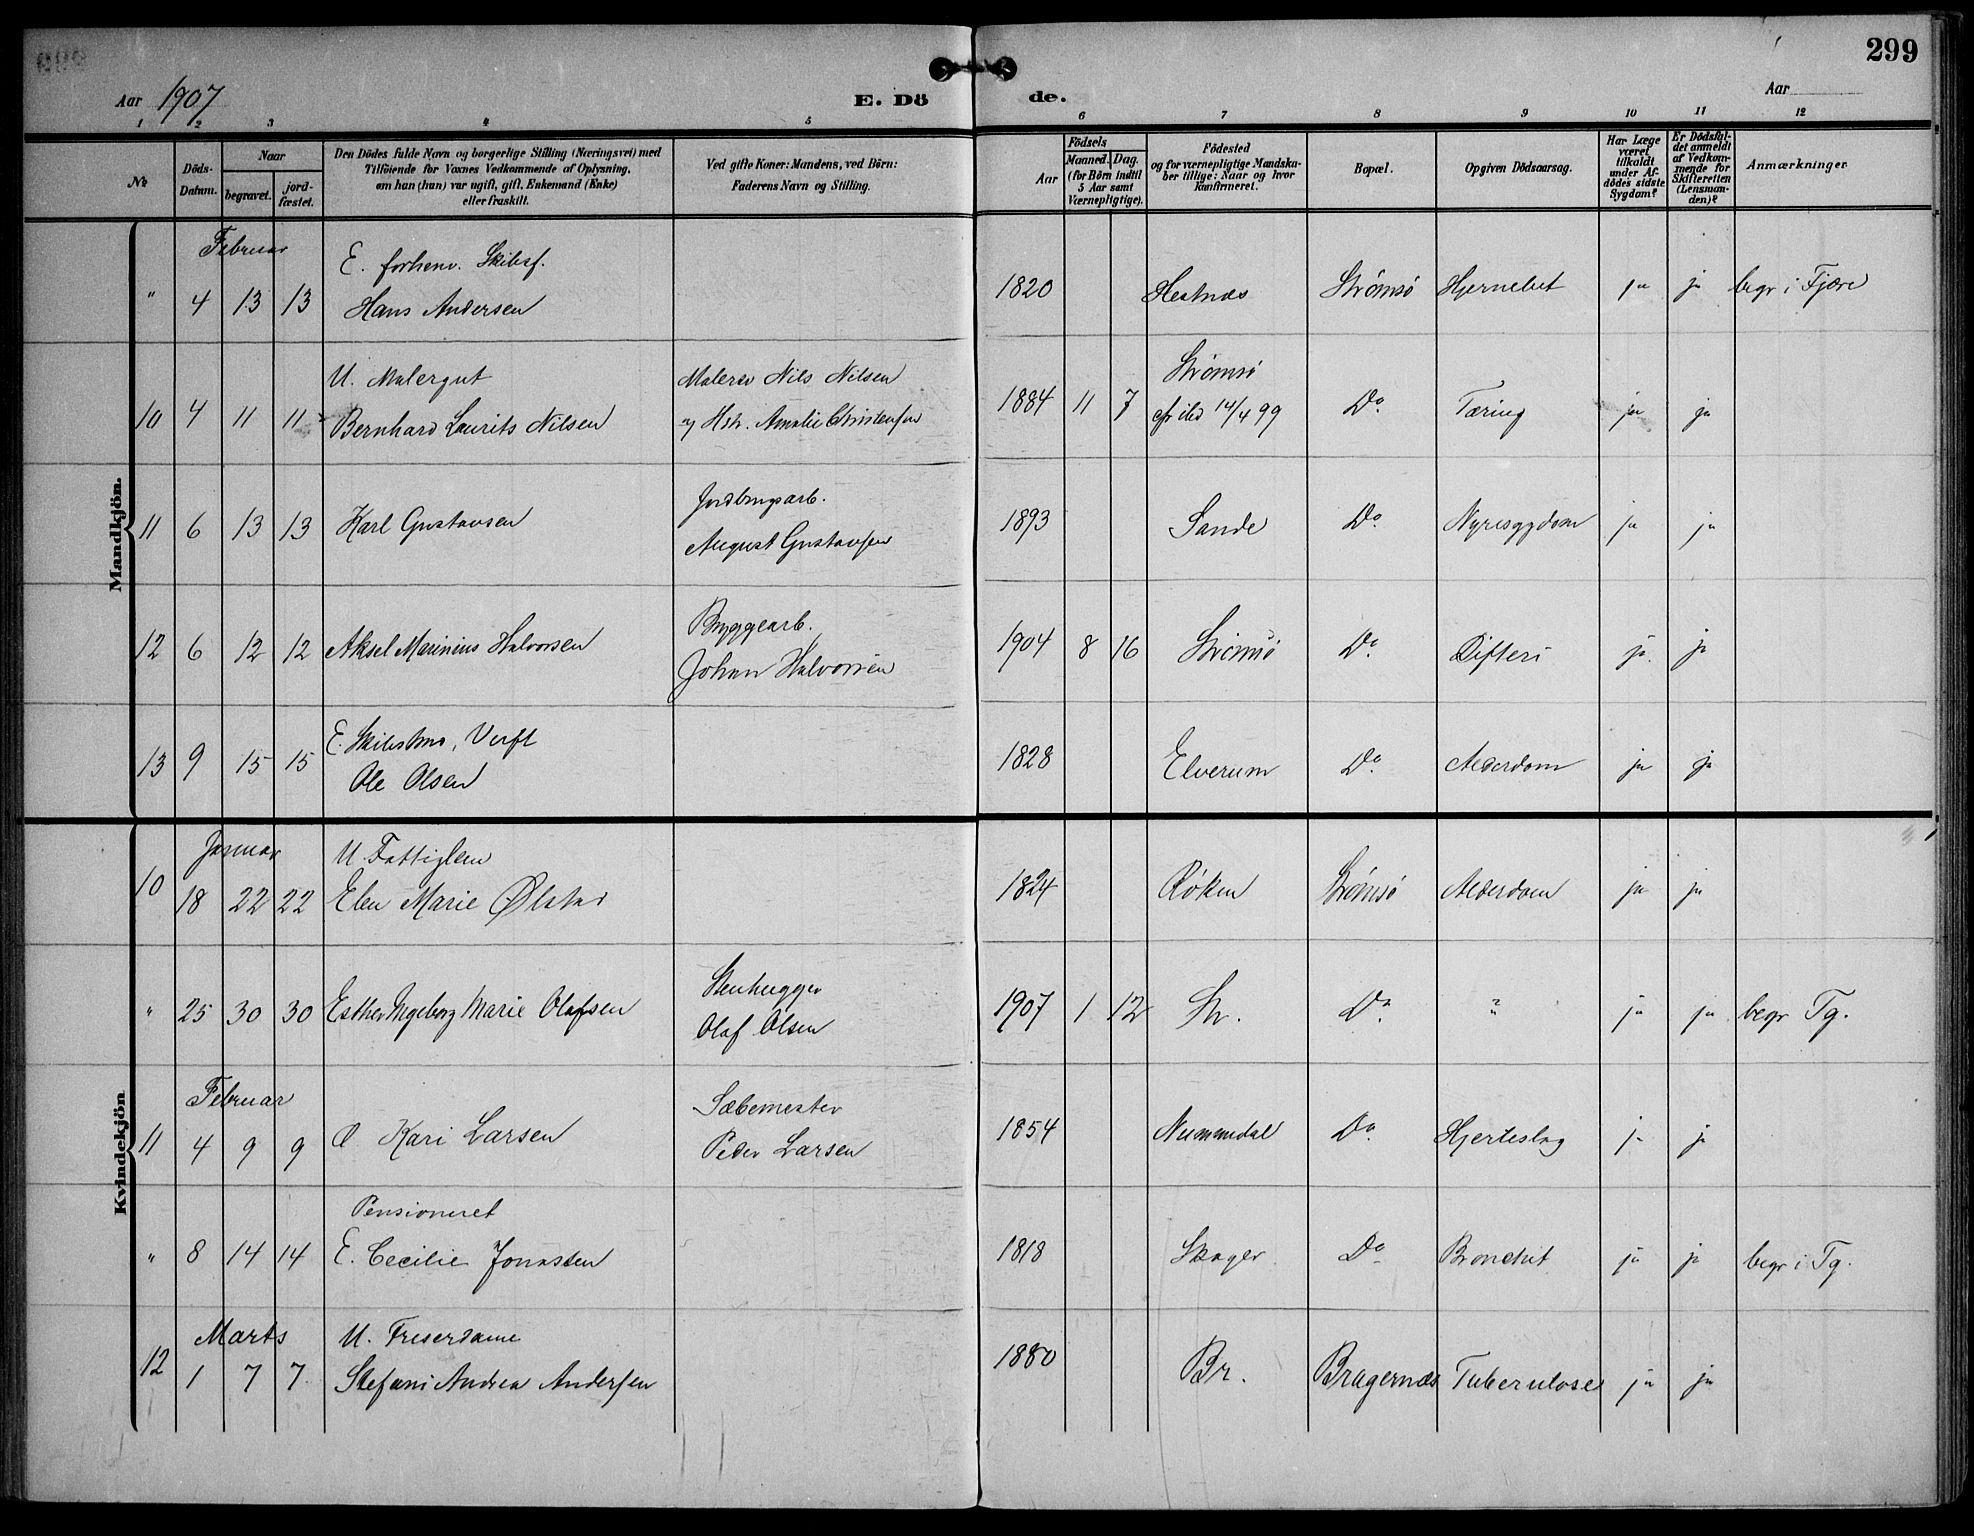 299
Aar 1907
E. Dö de.
Aar
1 2 3 4 5 6 7 8 9 10 11 12
No
Döds-Datum.
Naar
begravet.
jord-fæstet.
Den Dödes fulde Navn og borgerlige Stilling (Næringsvei) med
Tilföiende for Voxnes Vedkommende af Oplysning,
om han (hun) var ugift, gift, Enkemand (Enke)
eller fraskilt.
Ved gifte Koner: Mandens, ved Börn:
Faderens Navn og Stilling.
Födsels
Aar
Maaned. Dag.
(for Börn indtil
5 Aar samt
Værnepligtige).
Födested
og for værnepligtige Mandska-
ber tillige: Naar og hvor
konfirmeret.
Bopæl.
Opgiven Dödsaarsag.
Har Læge
været
tilkaldt
under Af-
dödes sidste
Sygdom?
Er Dödsfal-
det anmeldt
af Vedkom-
mende for
Skifteretten
(Lensman-
den)?
Anmærkninger
Mandkjön.
Februar
E. forhenv. Skibsf.
" 4 13 13 Hans Andersen 1820 Hestnæs Strømsø ja ja begr i Fjære
U. Malergut Maleren Nils Nilsen Strømsø
10 4 11 11 Bernhard Laurits Nilsen og Hstr. Amalie Christensen 1884 11 7 14/4 99 Do. Tæring ja ja
Jordbrugsarb.
11 6 13 13 Karl Gustavsen August Gustavsen 1893 Sande Do. Nyresygdom ja ja
Bryggearb.
12 6 12 12 Aksel Marinius Halvorsen Johan Halvorsen 1904 8 16 Strømsø Do. Difteri ja. ja
E. Verft
13 9 15 15 Ole Olsen 1828 Elverum Do. Alderdom ja ja
Kvindekjön
Januar U. Fattiglem
10 18 22 22 Elen Marie Ølstad 1824 Røken Strømsø Alderdom ja ja
Stenhugger
" 25 30 30 Esther Ingeborg Marie Olafsen Olaf Olsen 1907 1 12 Str. Do. " ja ja begr Tg.
Februar Sæbemester
11 4 9 9 Kari Larsen Peder Larsen 1854 Nummedal Do. Hjerteslag ja ja
Pensioneret
" 8 14 14 E. Cecilie Jonassen 1818 Skoger Do Bronchit ja ja begr i Tg.
Marts U. Friserdame
12 1 7 7 Stefani Andrea Andersen 1880 Br. Bragernæs Tuberculose ja ja